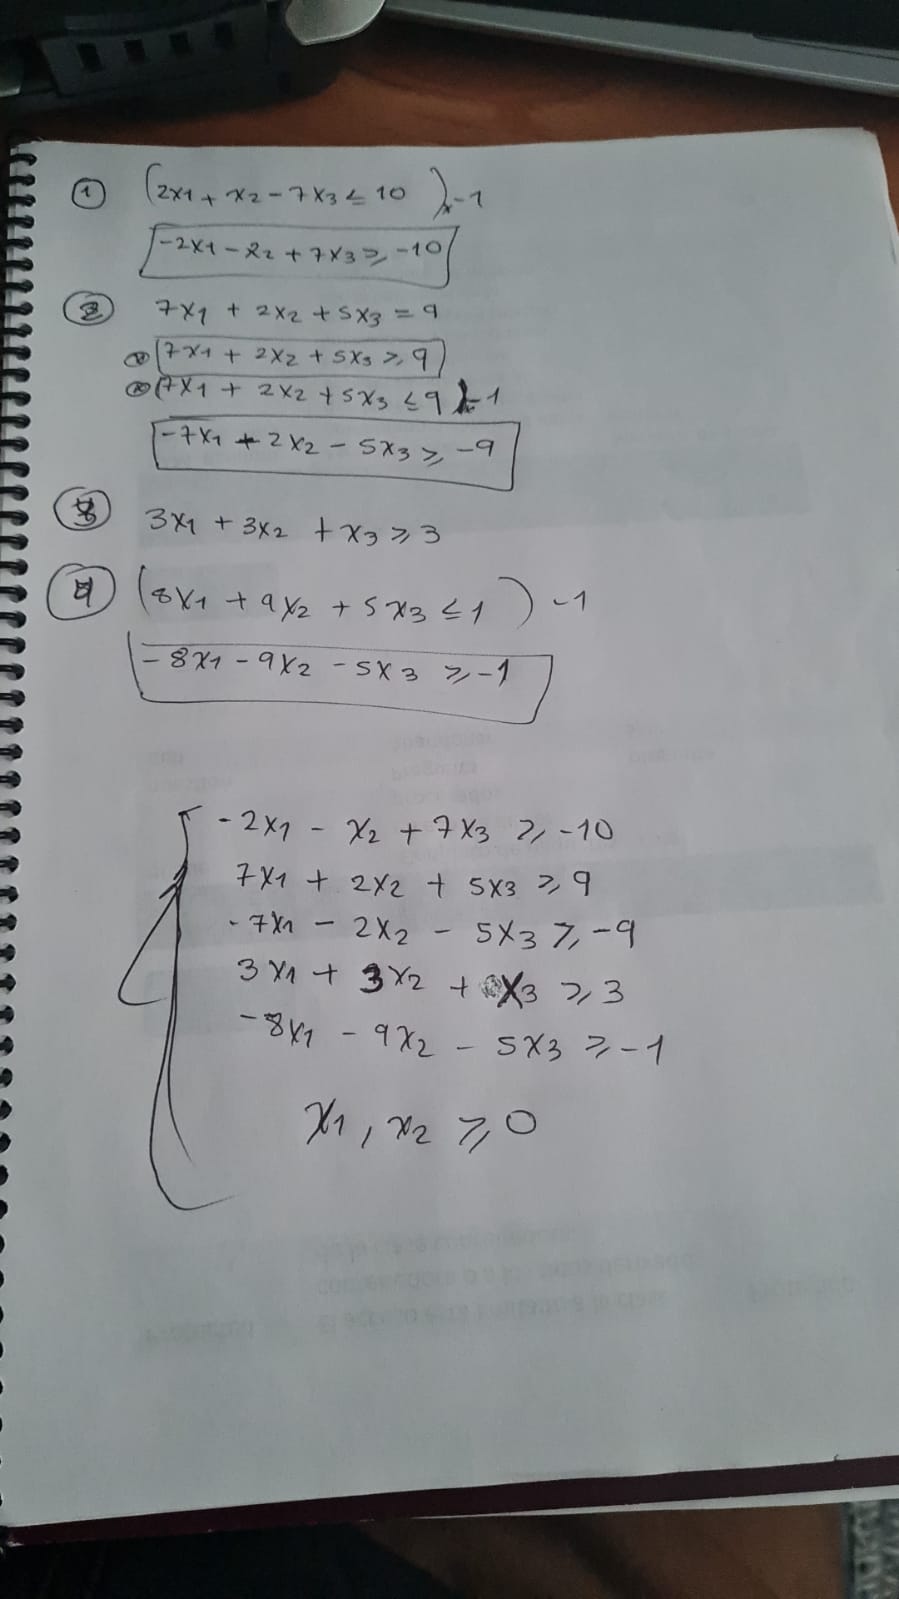 ① (2x1 + x2 - 7x3 ≤ 10) x-1
-2x1 - x2 + 7x3 ≥ -10
② 7x1 + 2x2 + 5x3 = 9
7x1 + 2x2 + 5x3 ≥ 9
(7x1 + 2x2 + 5x3 ≤ 9) x-1
-7x1 + 2x2 - 5x3 ≥ -9
③ 3x1 + 3x2 + x3 ≥ 3
④ (8x1 + 9x2 + 5x3 ≤ 1) -1
-8x1 - 9x2 - 5x3 ≥ -1
-2x1 - x2 + 7x3 ≥ -10
7x1 + 2x2 + 5x3 ≥ 9
-7x1 - 2x2 - 5x3 ≥ -9
3x1 + 3x2 + x3 ≥ 3
-8x1 - 9x2 - 5x3 ≥ -1
x1, x2 ≥ 0